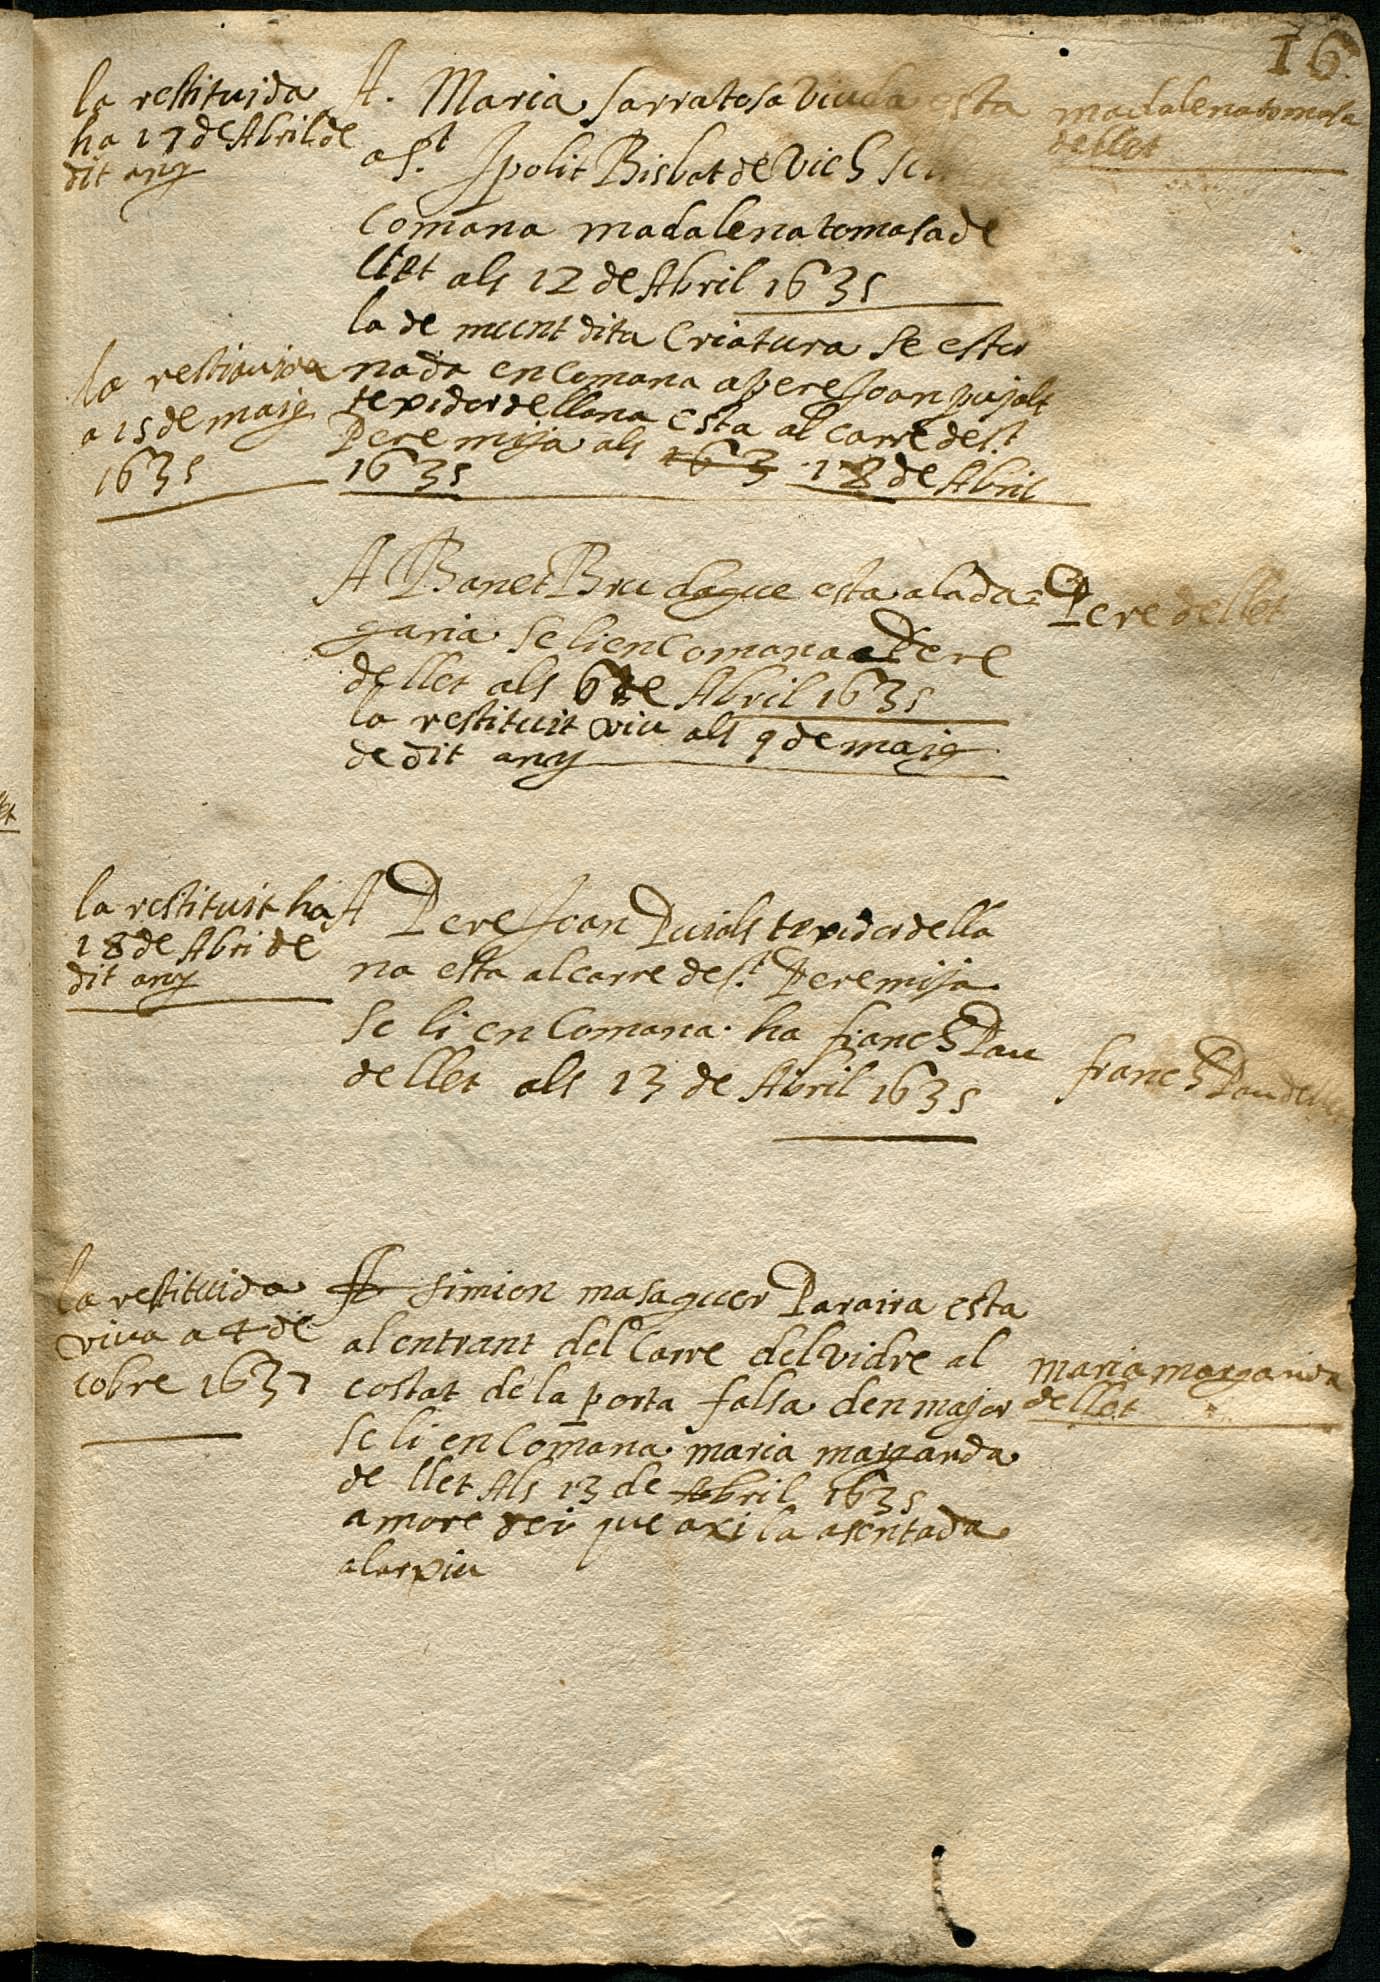 16
la restituida
ha 17 de Abril de
dit any
A. Maria sarratosa viuda esta
a st. Jpolit Bisbat de Vich se
comana madalena tomasa de
llet als 12 de Abril 1635
madalena tomasa
de llet
la de munt dita Criatura se es tor
nada en comana a pere Joan pujols
texidor de llana esta al carre de st.
Pere mija als 163 18 de Abril
1635
la restituida
a 15 de maig
1635
A Banet Bru que esta a la da=
garia se li en comana a Pere
de llet als 6 de Abril 1635
la restituit viu als 9 de maig
de dit any
Pere de llet
la restituit ha
18 de Abri de
dit any
A Pere Joan Puiols texidor de lla
na esta al carre de st. Pere mija
se li en comana ha franch Pau
de llet als 13 de Abril 1635
franch Pau de
la restituida
viua a 4 de
cobre 1637
A simion masaguer Paraira esta
al entrant del Carre del vidre al
costat de la porta falsa den major
se li en comana maria margarida
de llet Als 13 de Abril 1635
amore dei que axi la asentada
alarxiu
maria margarida
de llet